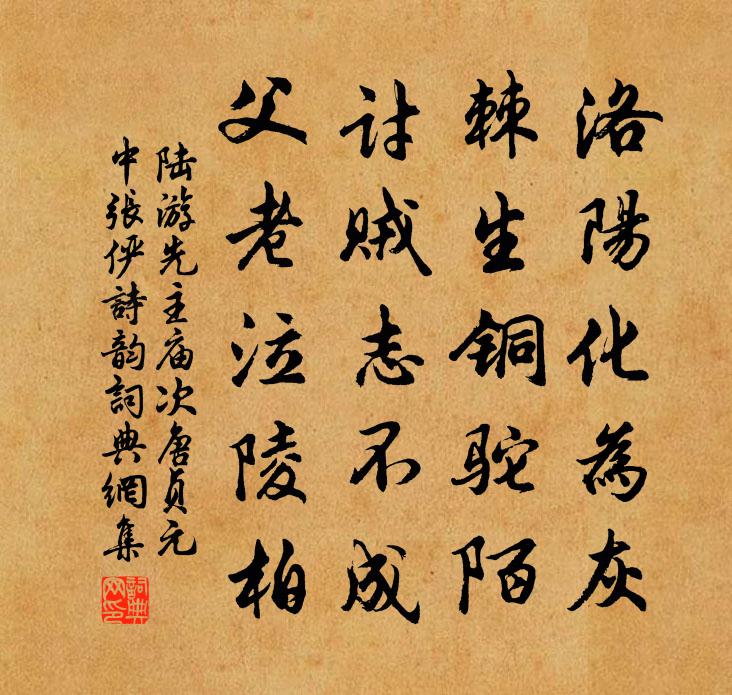 洛陽化為灰
棘生铜駝陌
討賊志不成
父老泣陵柏
陆游先主庙次唐貞元
中張俨詩韵詞典網集
詞典網印